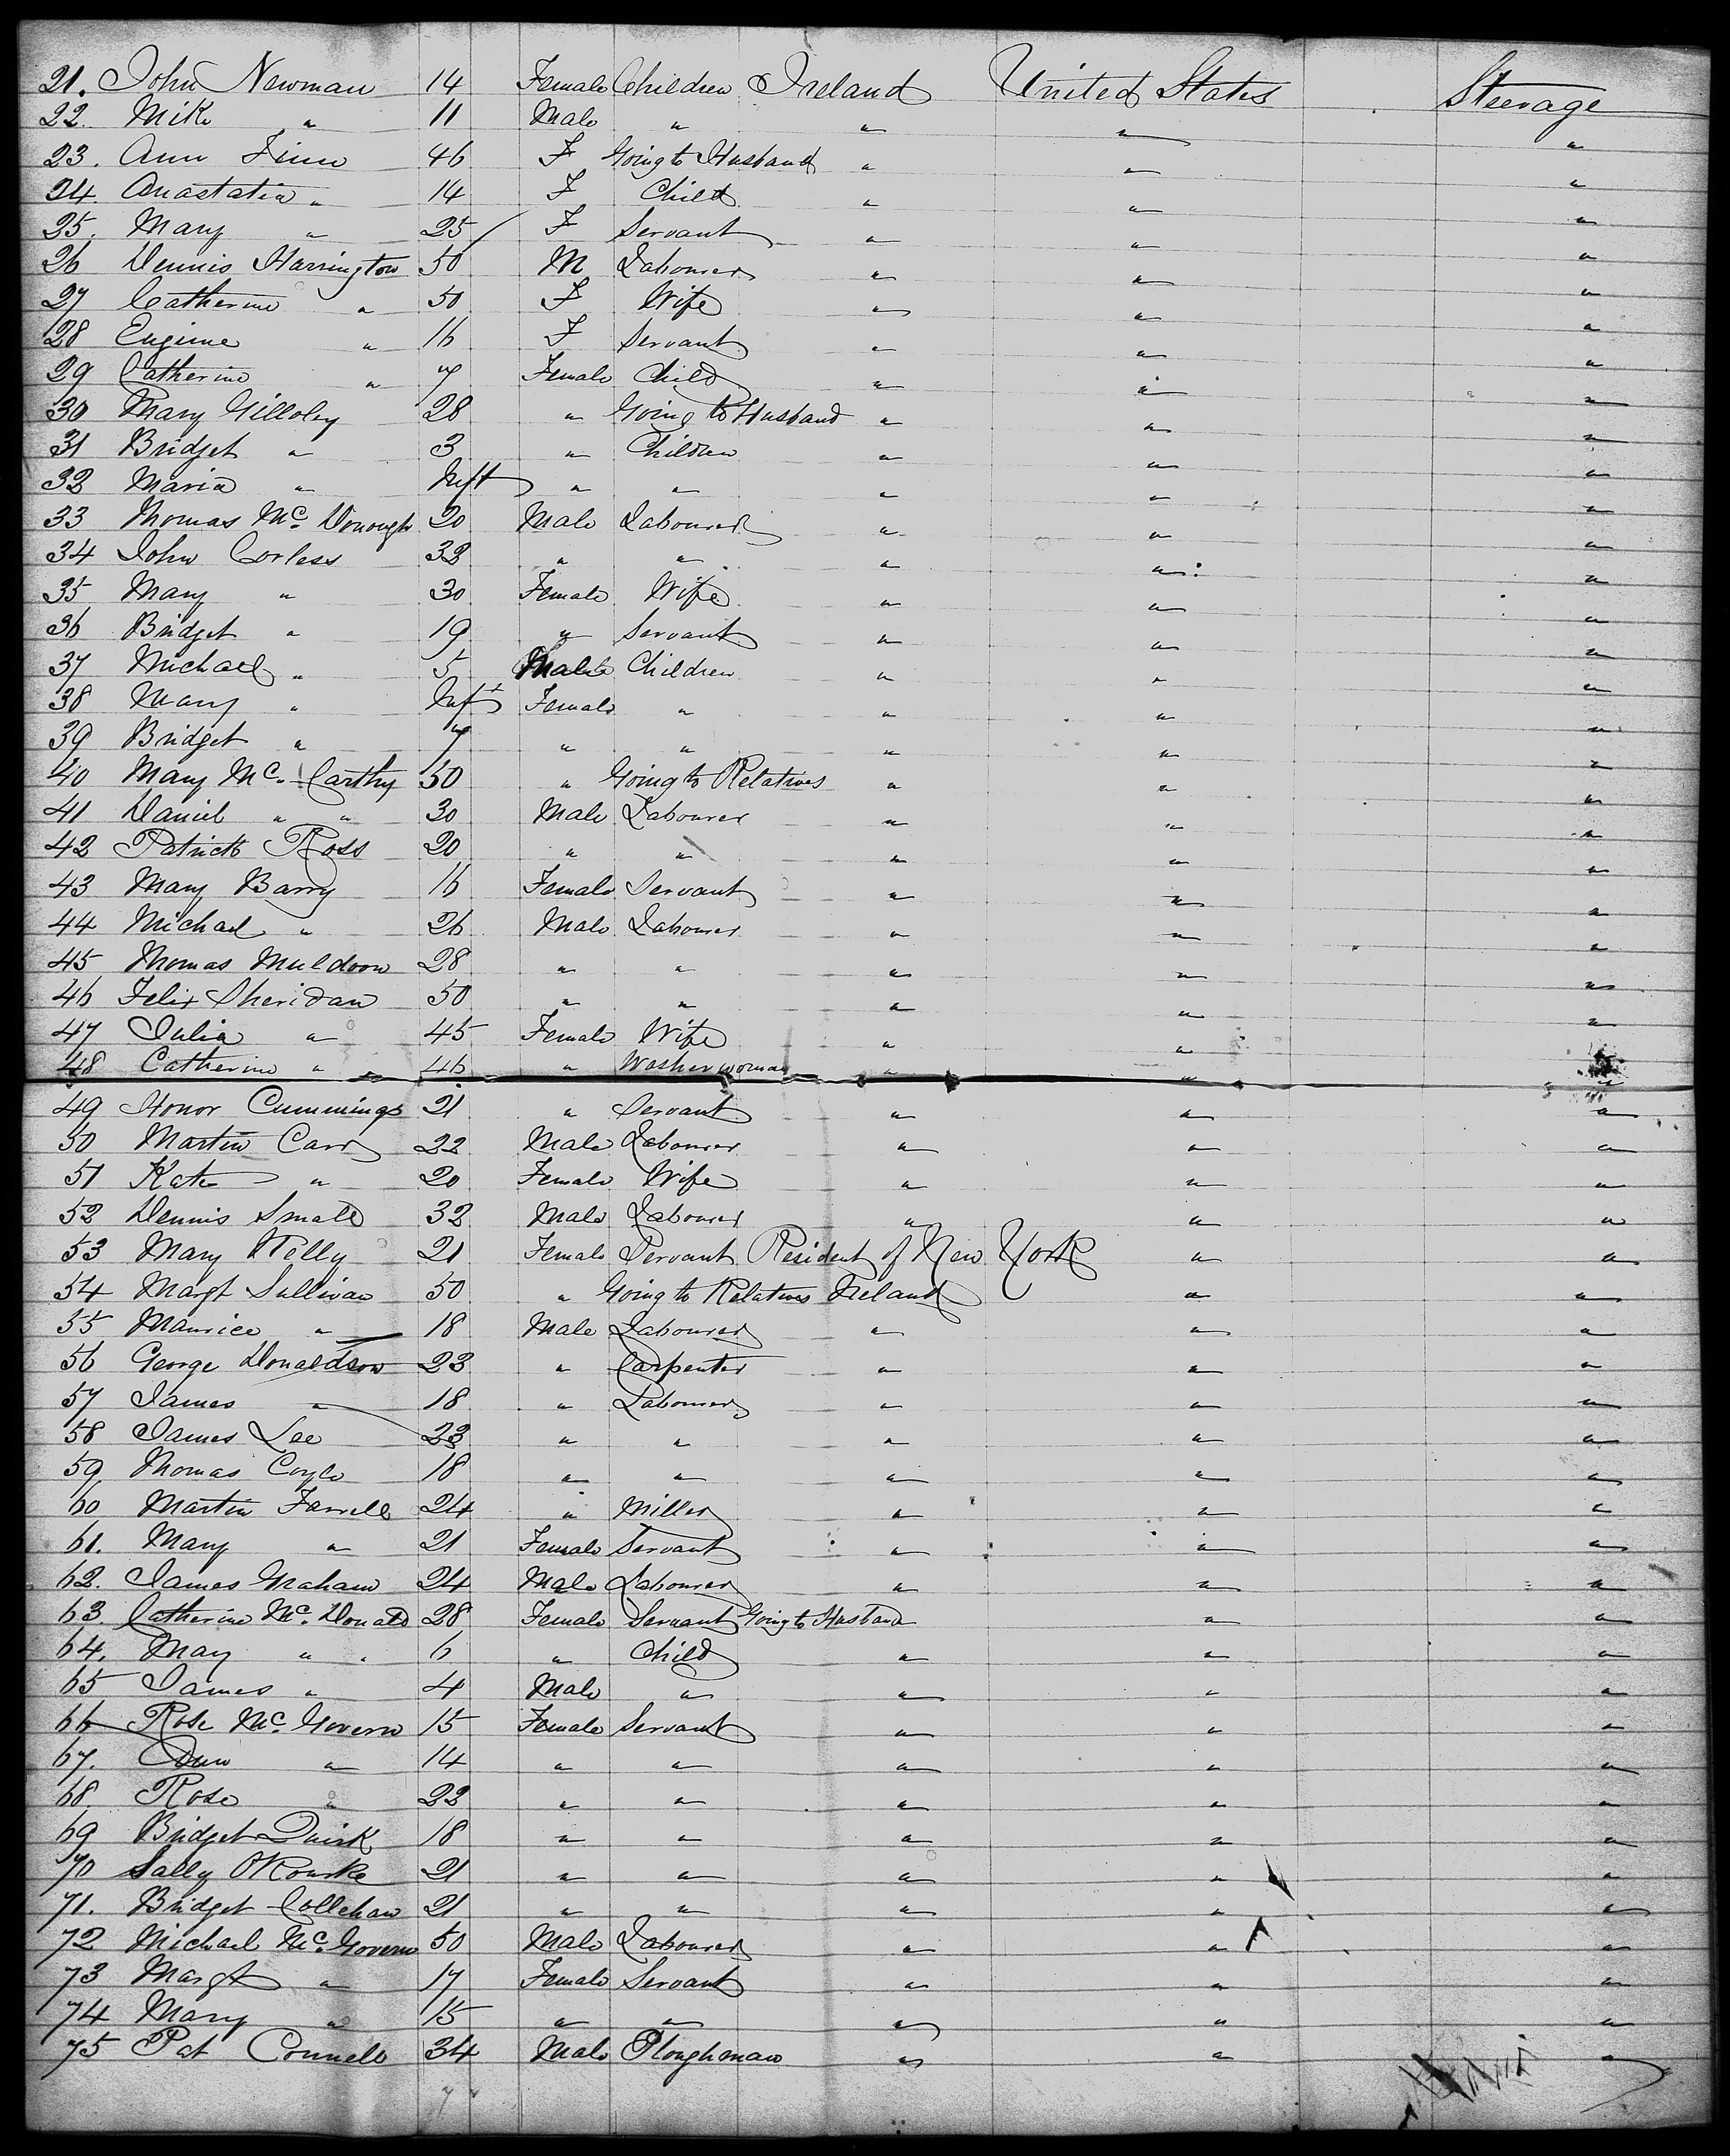 21. John Newman 14 Female Children Ireland United States Steerage
22. Mike " 11 Male " " " "
23. Ann Finn 46 F Going to Husband " " "
24 Anastatia " 14 F Child " " "
25. Mary " 25 F Servant " " "
26 Dennis Harrington 50 M Labourer " " "
27 Catherine " 50 F Wife " " "
28 Eugine " 16 F Servant " " "
29 Catherine " 7 Female Child " " "
30 Mary Gilloley 28 " Going to Husband " " "
31 Bridget " 3 " Children " " "
32 Maria " Inft " " " " "
33 Thomas McDonough 20 Male Labourer " " "
34 John Corless 32 " " " " "
35 Mary " 30 Female Wife " " "
36 Bridget " 19 " Servant " " "
37 Michael " 5 Male Children " " "
38 Mary " Inft Female " " " "
39 Bridget " 7 " " " " "
40 Mary Mc. Carthy 50 " Going to Relatives " " "
41 Daniel " " 30 Male Labourer " " "
42 Patrick Ross 20 " " " " "
43 Mary Barry 16 Female Servant " " "
44 Michael " 26 Male Labourer " " "
45 Thomas Muldoon 28 " " " " "
46 Felix Sheridan 50 " " " " "
47 Julia " 45 Female Wife " " "
48 Catherine " 46 " Washerwoman " " "
49 Honor Cummings 21 " Servant " " "
50 Martin Carr 22 Male Labourer " " "
51 Kate " 20 Female Wife " " "
52 Dennis Small 32 Male Labourer " " "
53 Mary Kelly 21 Female Servant Resident of New York " "
54 Margt Sullivan 50 " Going to Relatives Ireland " "
55 Maurice " 18 Male Labourer " " "
56 George Donaldson 23 " Carpenter " " "
57 James " 18 " Labourer " " "
58 James Lee 23 " " " " "
59 Thomas Coyle 18 " " " " "
60 Martin Farrell 24 " Miller " " "
61. Mary " 21 Female Servant " " "
62. James Graham 24 Male Labourer " " "
63. Catherine Mc. Donald 28 Female Servant Going to Husband " "
64. May " " 6 " Child " " "
65 James " 4 Male " " " "
66 Rose Mc Govern 15 Female Servant " " "
67. Ann " 14 " " " " "
68. Rose " 22 " " " " "
69 Bridget Quirk 18 " " " " "
70 Sally O'Rourke 21 " " " " "
71. Bridget Collehan 21 " " " " "
72 Michael Mc. Govern 50 Male Labourer " " "
73 Margt " 17 Female Servant " " "
74 Mary " 15 " " " " "
75 Pat Connell 34 Male Ploughman " " "